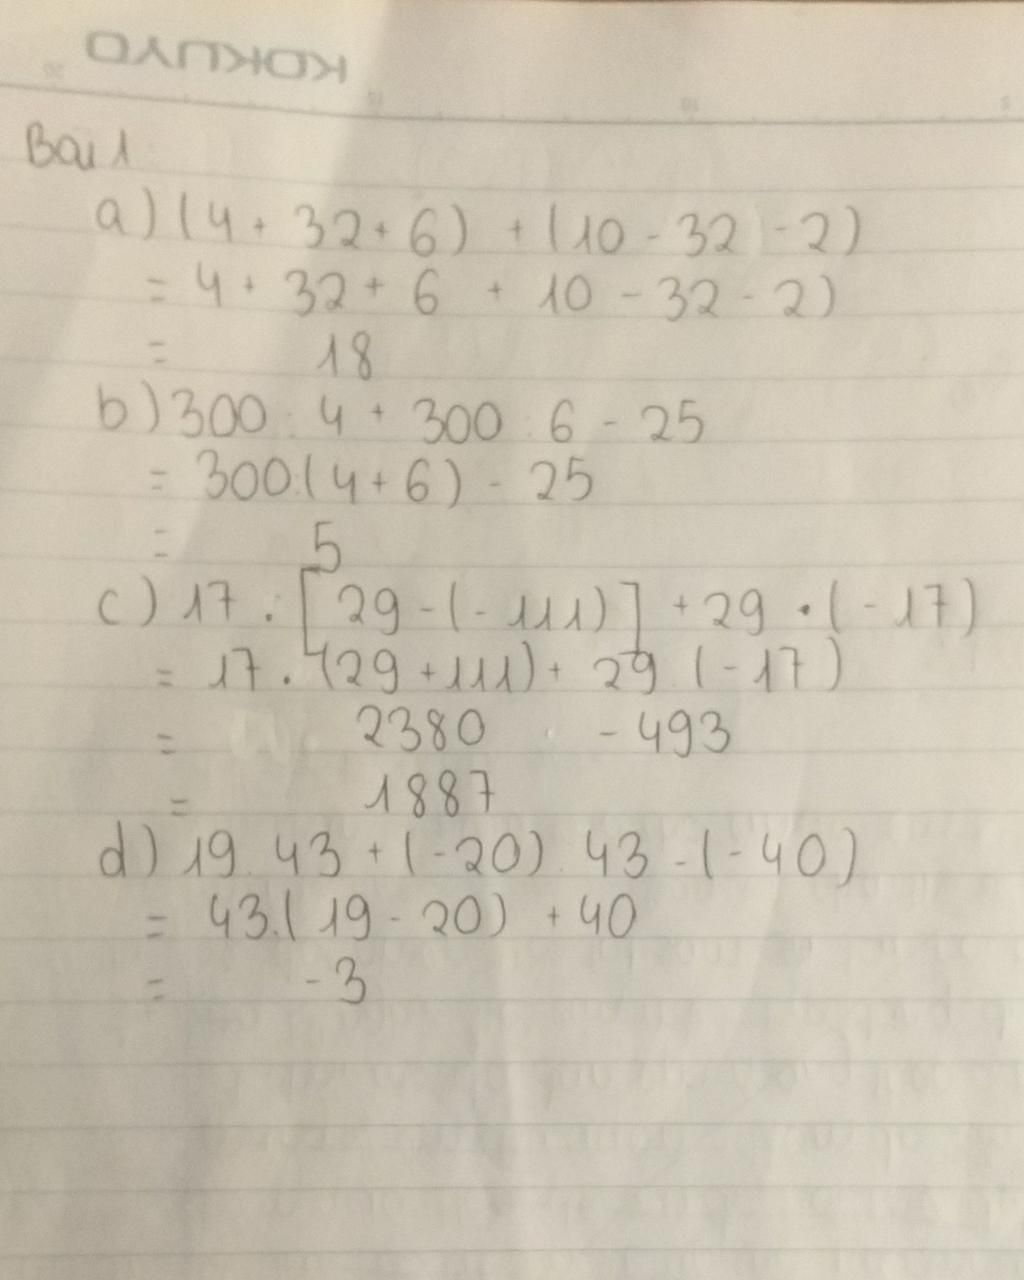 KOKUYO
Bài 1
a) (4 + 32 + 6) + (10 - 32 - 2)
= 4 + 32 + 6 + 10 - 32 - 2)
= 18
b) 300 : 4 + 300 : 6 - 25
= 300:(4+6) - 25
= 5
c) 17 . [29 - (-111)] + 29 . (-17)
= 17 . (29 + 111) + 29 (-17)
= 2380 - 493
= 1887
d) 19. 43 + (-20). 43 - (-40)
= 43.(19 - 20) + 40
= -3